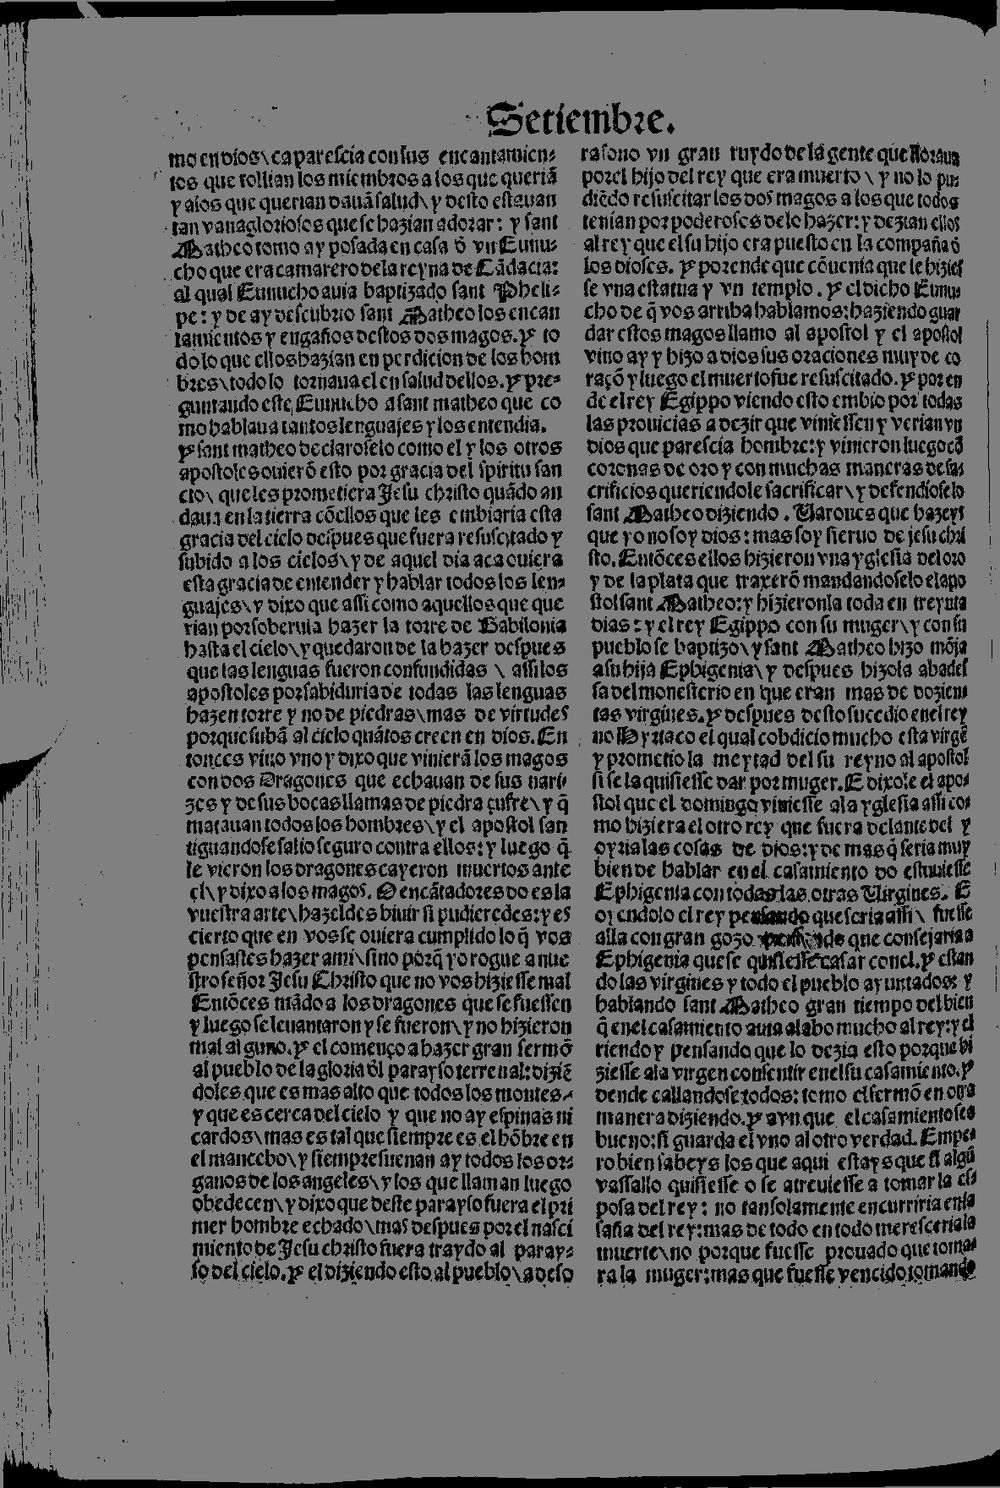 Setiembre.
mo en dios \ ca parescia con sus encantamien-
tos que tollian los miembros a los que queriã
y a los que querian dauã salud \ y desto estauan
tan vanagloriosos que se hazian adorar: y sant
Matheo tomo ay posada en casa d̃ vn Eunu-
cho que era camarero de la reyna de Cãdacia:
al qual Eunucho auia baptizado sant Pheli-
pe: y de ay descubrio sant Matheo los encan
tamientos y engaños destos dos magos. y to
do lo que ellos hazian en perdicion de los hom
bres \ todo lo tornaua el en salud dellos. y pre-
guntando este Eunucho a sant matheo que co
mo hablaua tantos lenguajes y los entendia.
y sant matheo declaroselo como el y los otros
apostoles ouierõ esto por gracia del spiritu san
cto \ que les prometiera Jesu christo quãdo an
daua en la tierra cõellos que les embiaria esta
gracia del cielo despues que fuera resuscitado y
subido a los cielos \ y de aquel dia aca ouiera
esta gracia de entender y hablar todos los len-
guajes \ y dixo que assi como aquellos que que
rian por soberuia hazer la torre de Babilonia
hasta el cielo \ y quedaron de la hazer despues
que las lenguas fueron confundidas \ assi los
apostoles por sabiduria de todas las lenguas
hazen torre y no de piedras \ mas de virtudes
porque subã al cielo quãtos creen en dios. En
tonces vino vno y dixo que vinierã los magos
con dos Dragones que echauan de sus nari-
zes y de sus bocas llamas de piedra çufre \ y q̃
matauan todos los hombres \ y el apostol san
tiguandose salio seguro contra ellos: y luego q̃
le vieron los dragones cayeron muertos ante
el \ y dixo a los magos. O encãtadores do es la
vuestra arte \ hazeldes biuir si pudieredes: y es
cierto que en vos se ouiera cumplido lo q̃ vos
pensastes hazer a mi \ sino porq̃ yo rogue a nue
stro señor Jesu Christo que no vos hiziesse mal
Entõces mãdo a los dragones que se fuessen
y luego se leuantaron y se fueron \ y no hizieron
mal alguno. y el començo a hazer gran sermõ
al pueblo de la gloria d̃l parayso terrenal: diziẽ
doles que es mas alto que todos los montes
y que es cerca del cielo y que no ay espinas ni
cardos \ mas es tal que siempre es el hõbre en
el mancebo \ y siempre suenan ay todos los or-
ganos de los angeles \ y los que llaman luego
obedecen \ y dixo que deste parayso fuera el pri
mer hombre echado \ mas despues por el nasci
miento de Jesu christo fuera traydo al paray-
so del cielo. y el diziendo esto al pueblo \ a deso
ra sono vn gran ruydo de la gente que lloraua
por el hijo del rey que era muerto \ y no lo pu-
diẽdo resuscitar los dos magos a los que todos
tenian por poderosos de lo hazer: y dezian ellos
al rey que el su hijo era puesto en la compaña d̃
los dioses. y por ende que cõuenia que le hizies
se vna estatua y vn templo. y el dicho Eunu-
cho de q̃ vos arriba hablamos: haziendo guar
dar estos magos llamo al apostol y el apostol
vino ay y hizo a dios sus oraciones muy de co
raçõ y luego el muerto fue resuscitado. y por en
de el rey Egippo viendo esto embio por todas
las prouicias a dezir que viniessen y verian vn
dios que parescia hombre: y vinieron luego cõ
coronas de oro y con muchas maneras de sa-
crificios queriendole sacrificar \ y defendioselo
sant Matheo diziendo. Varones que hazeys
que yo no soy dios: mas soy sieruo de jesu chri
sto. Entõces ellos hizieron vna yglesia del oro
y de la plata que traxerõ mandandoselo el apo
stol sant Matheo: y hizieronla toda en treynta
dias: y el rey Egippo con su muger \ y con su
pueblo se baptizo \ y sant Matheo hizo mõja
a su hija Ephigenia \ y despues hizola abades
sa del monesterio en que eran mas de dozien
tas virgines. y despues desto sucedio en el rey
no Hyrtaco el qual cobdicio mucho esta virgẽ
y prometio la meytad del su reyno al apostol
si se la quisiesse dar por muger. E dixole el apo-
stol que el domingo viniesse a la yglesia assi co-
mo hiziera el otro rey que fuera delante del y
oyria las cosas de dios: y de mas q̃ seria muy
bien de hablar en el casamiento do estuuiesse
Ephigenia con todas las otras Virgines. E
oyendolo el rey pensando que seria assi \ fuesse
alla con gran gozo que consejaria a
Ephigenia que se quisiesse casar con el. y estan
do las virgines y todo el pueblo ayuntados: y
hablando sant Matheo gran tiempo del bien
q̃ en el casamiento auia alabo mucho al rey: y el
riendo y pensando que lo dezia esto porque hi
ziesse a la virgen consentir en el su casamiento. y
dende callandose todos: tomo el sermõ en otra
manera diziendo. y avn que el casamiento ses
bueno: si guarda el vno al otro verdad. Empe-
ro bien sabeys los que aqui estays que si algũ
vassallo quisiesse o se atreuiesse a tomar la es
posa del rey: no tansolamente encurriria en la
saña del rey: mas de todo en todo meresceria la
muerte \ no porque fuesse prouado que toma-
ra la muger: mas que fuesse vencido tomando